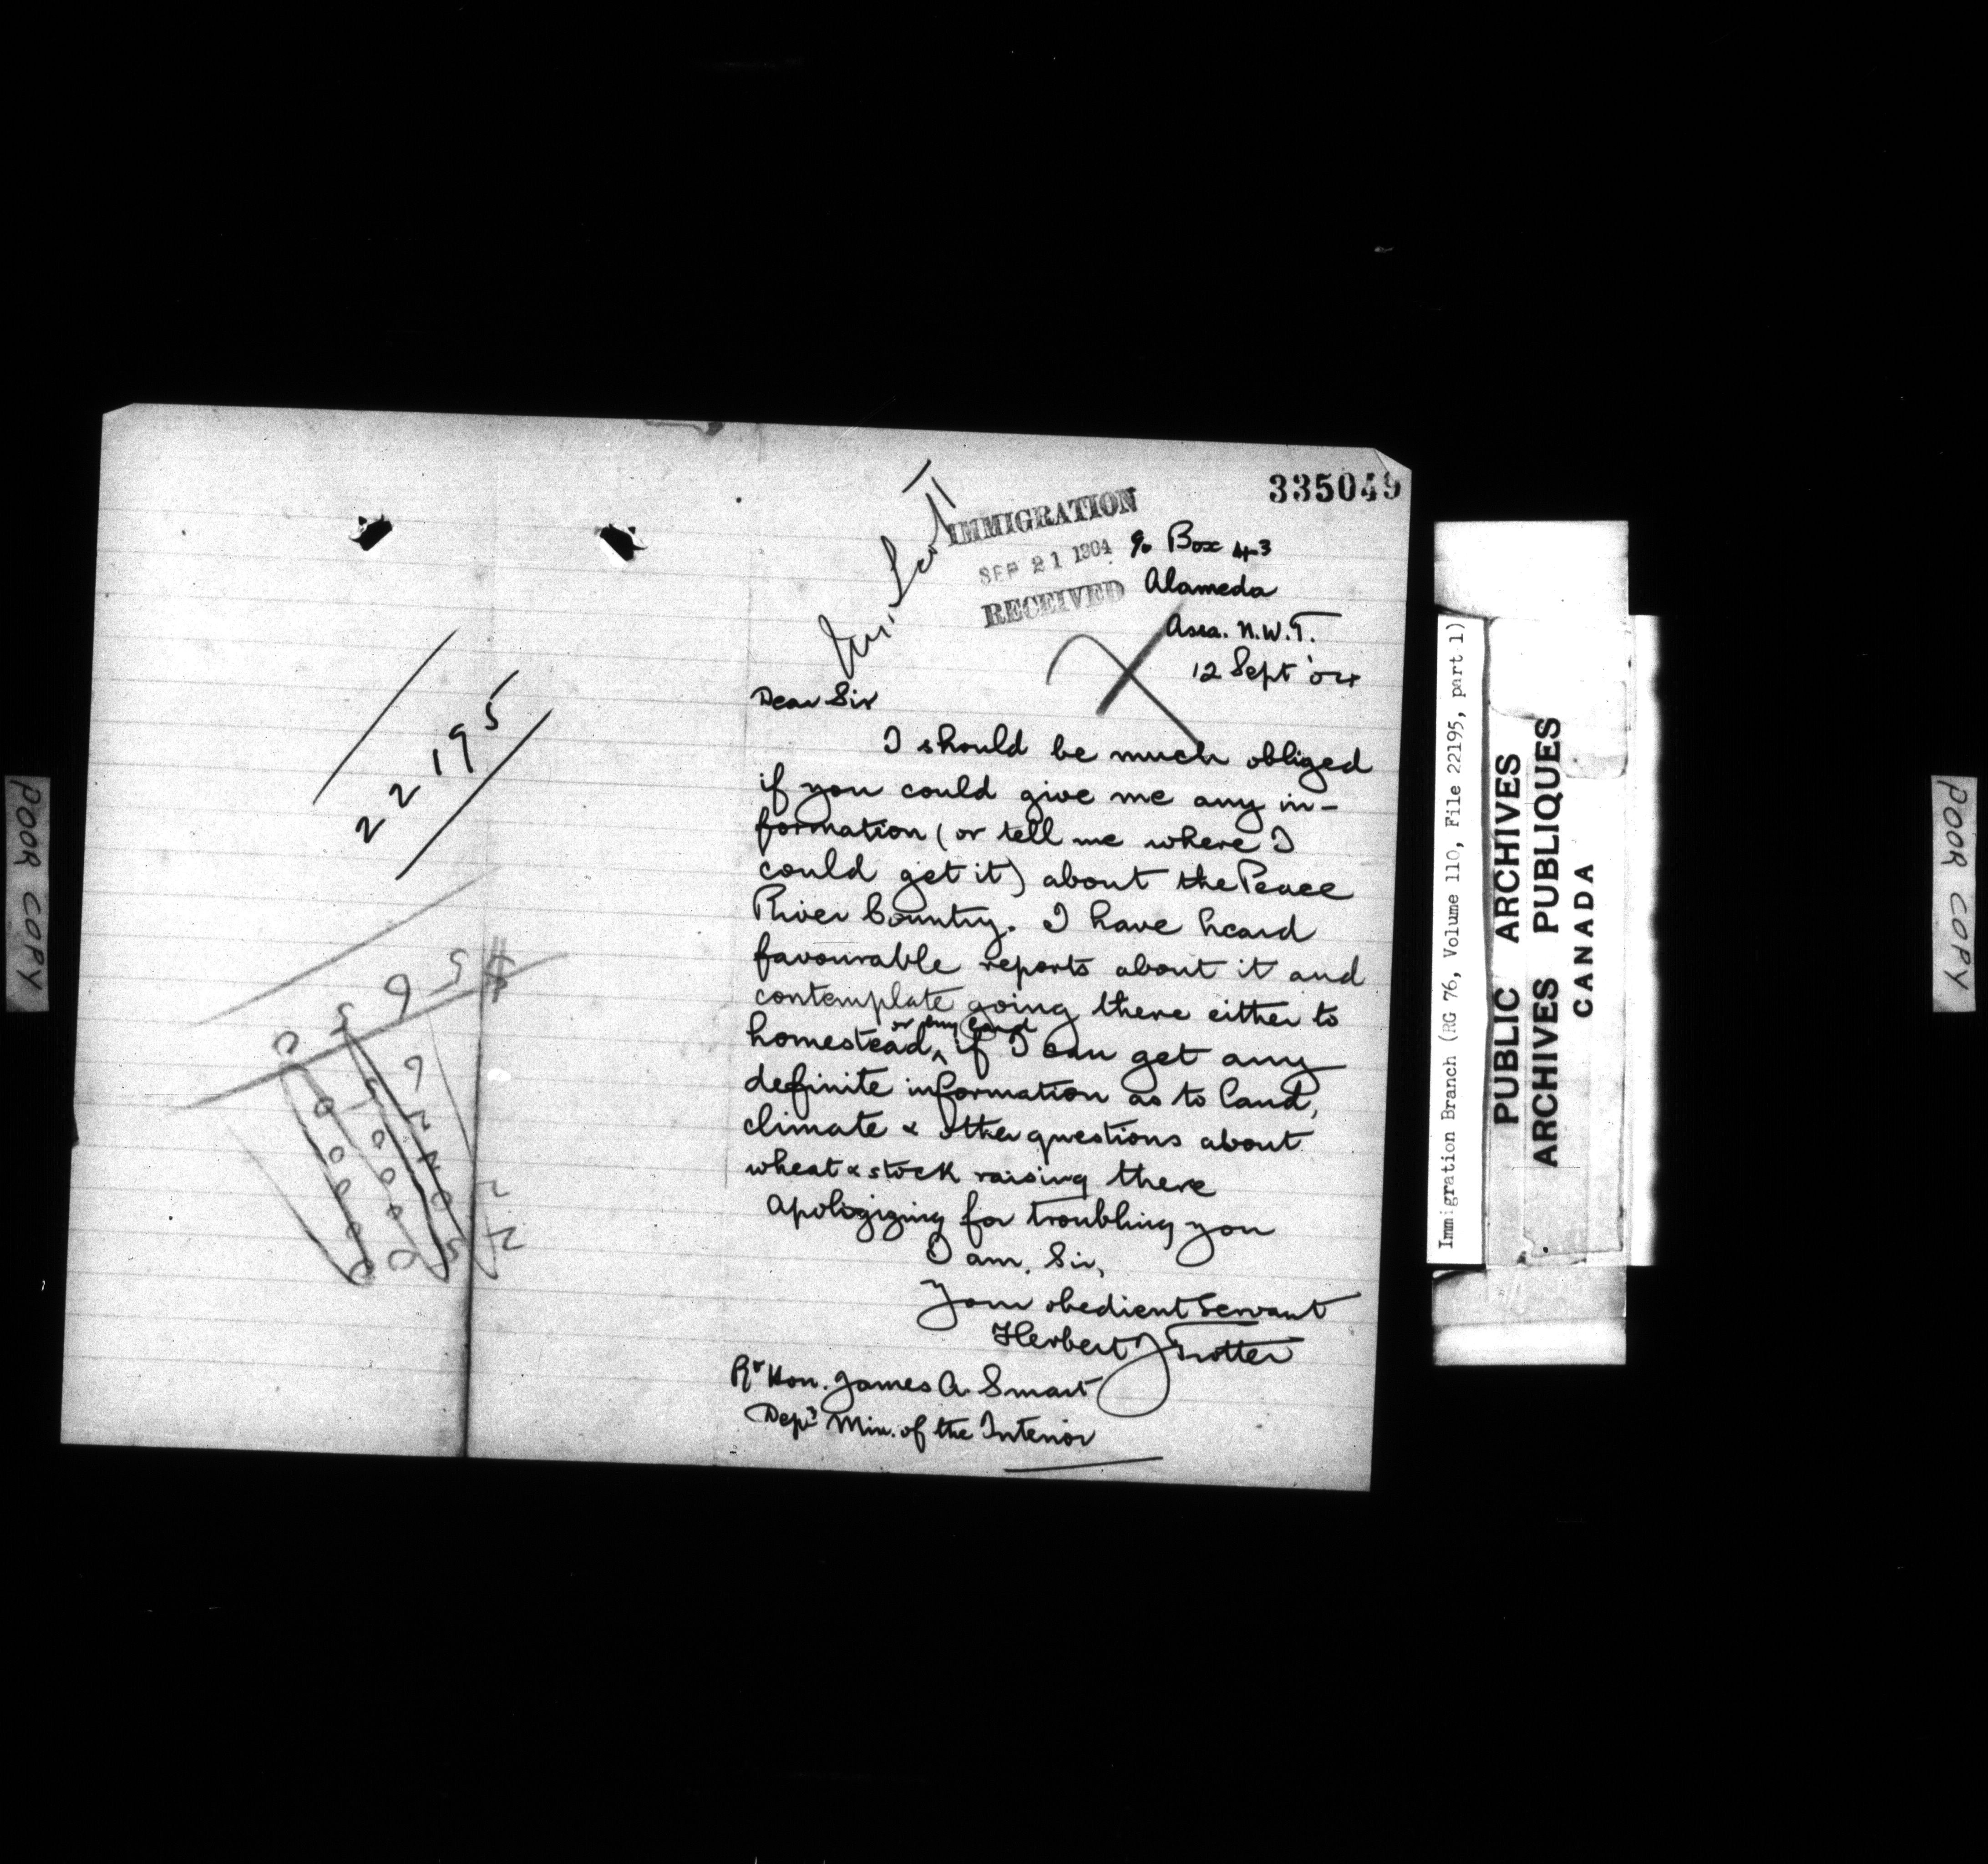 335049
IMMIGRATION
SEP 21 1904
RECEIVED
Mr. Scott
c/o Box 43
Alameda
Assa. N.W.T.
12 Sept '04
Dear Sir
I should be much obliged
if you could give me any in-
formation (or tell me where I
could get it) about the Peace
River Country. I have heard
favourable reports about it and
contemplate going there either to
homestead, or buy land if I can get any
definite information as to land,
climate & other questions about
wheat & stock raising there
Apologizing for troubling you
I am, Sir,
Your obedient Servant
Herbert J Trotter
Rt Hon. James A. Smart
Dept Min. of the Interior
22195
Immigration Branch (RG 76, Volume 110, File 22195, part 1)
PUBLIC ARCHIVES
ARCHIVES PUBLIQUES
CANADA
POOR COPY
POOR COPY